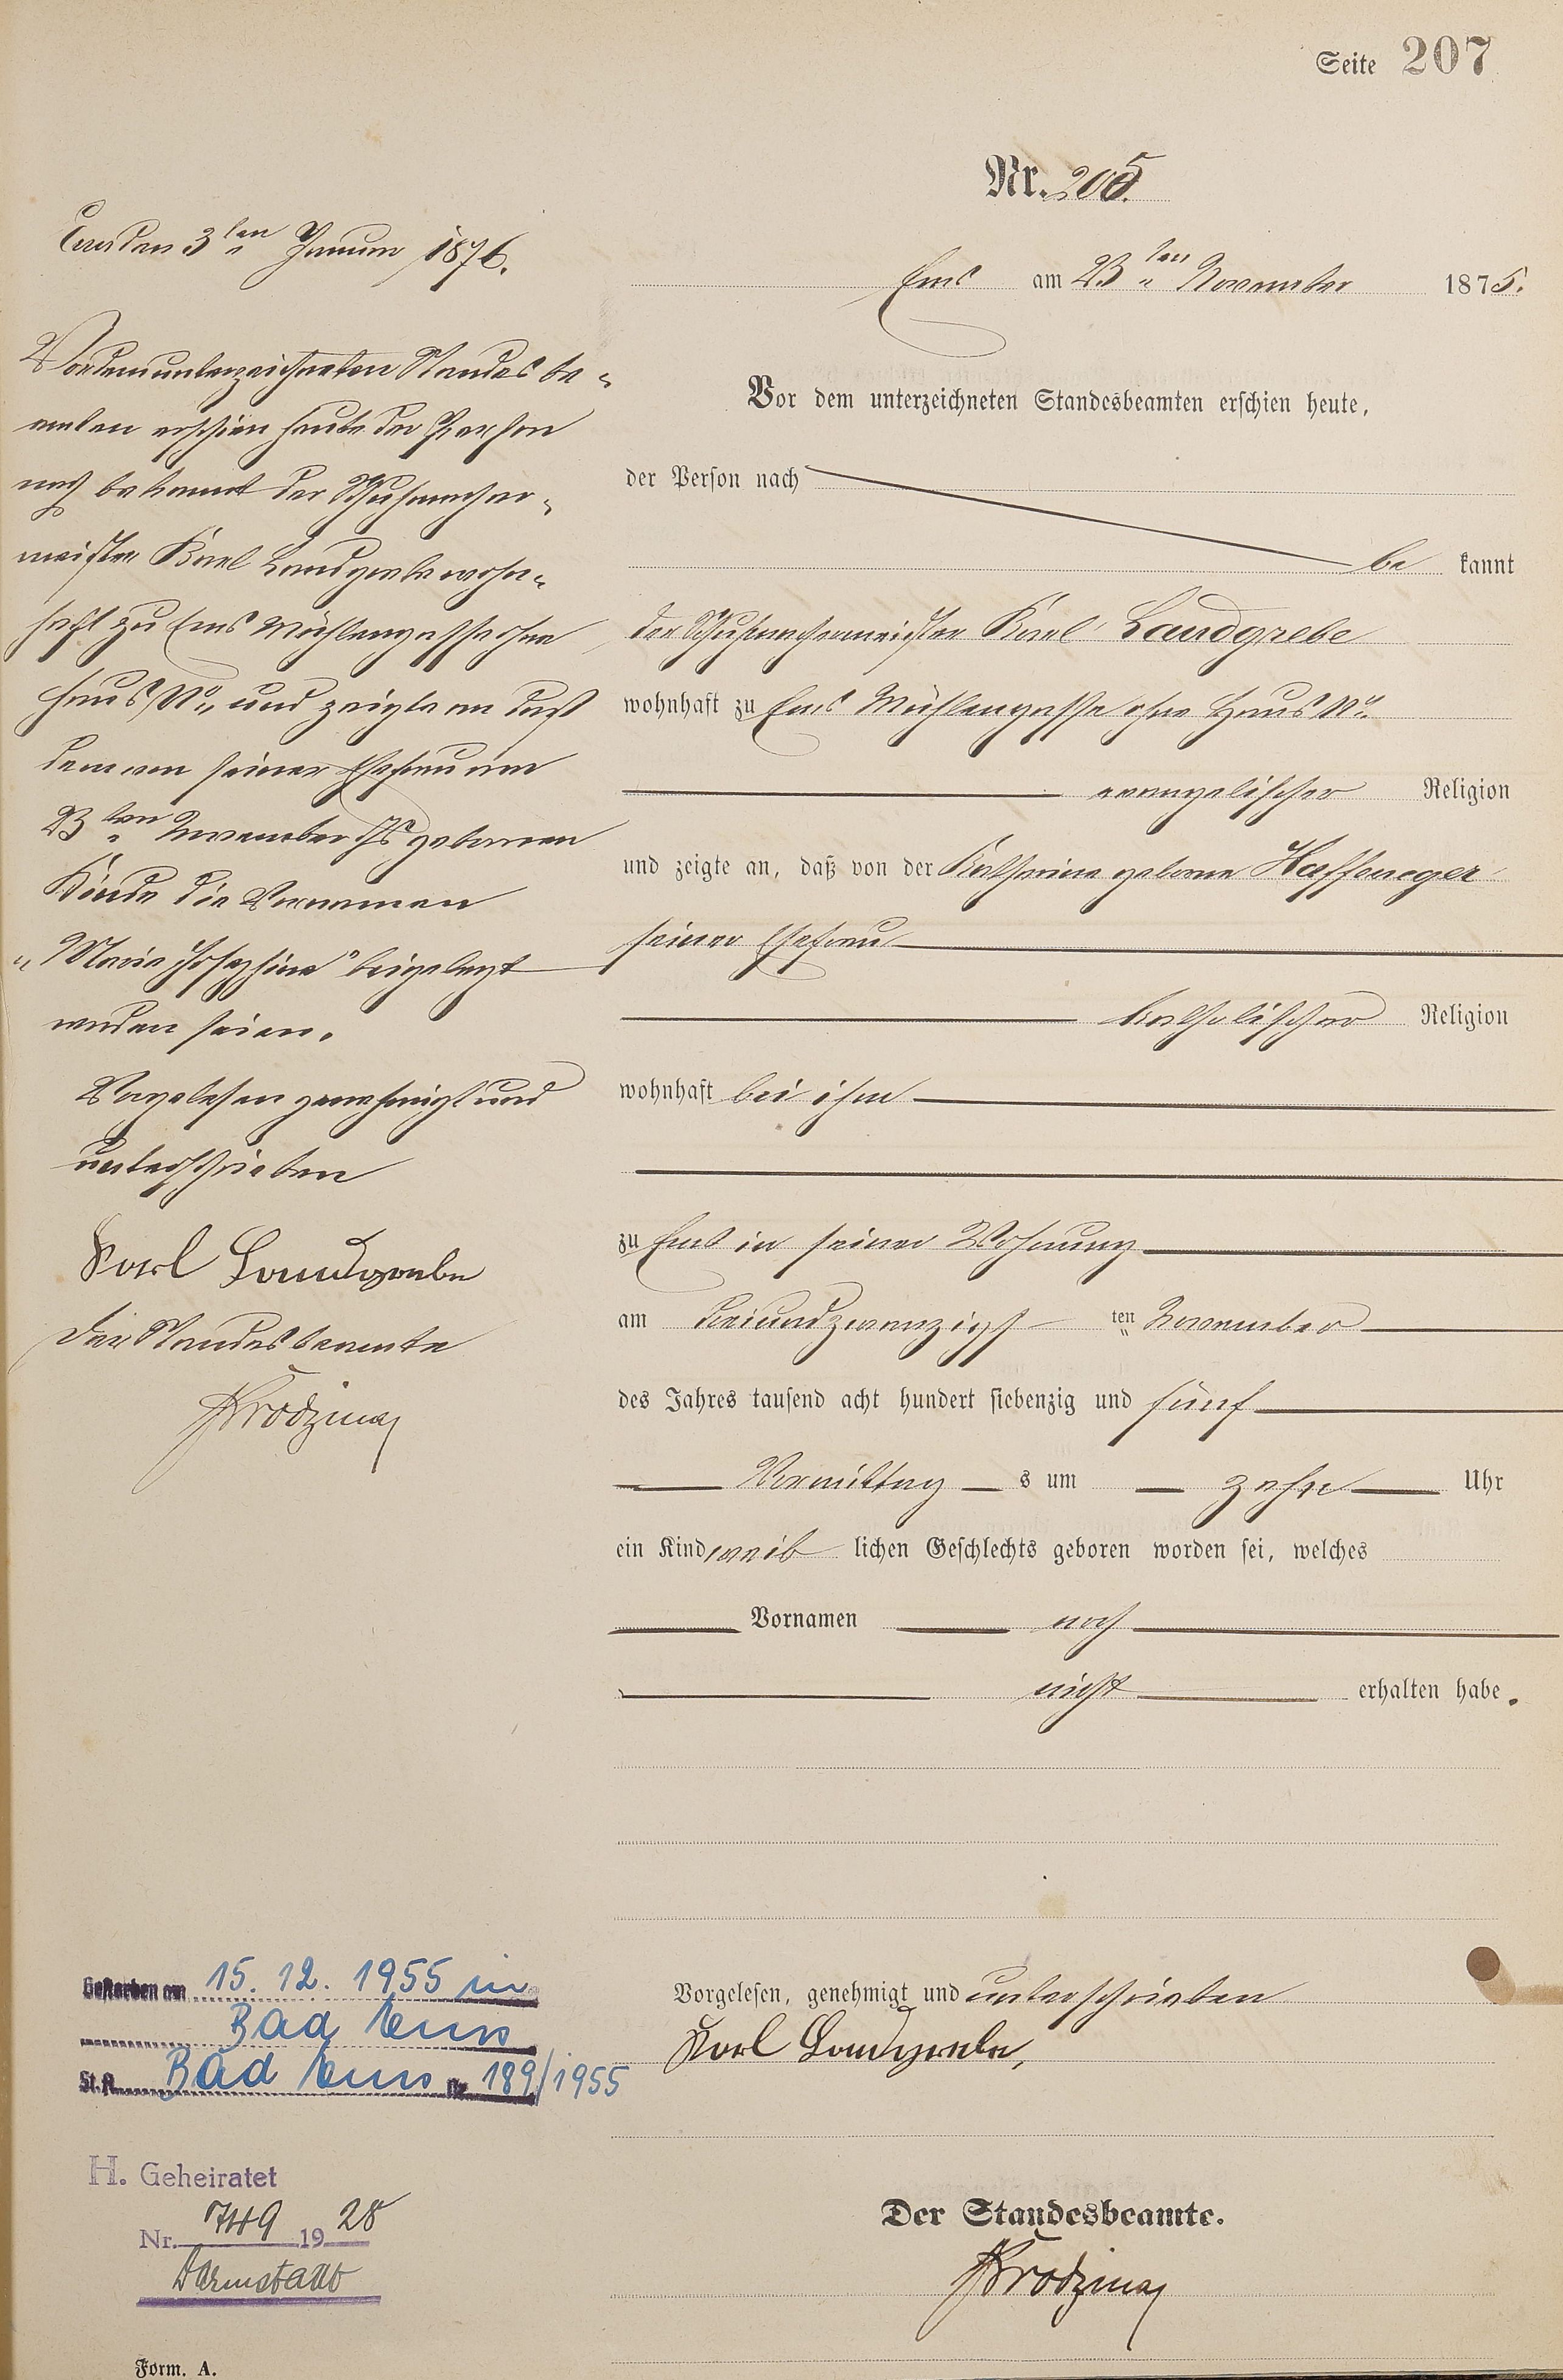 Seite 207
Nr. 205.
Ems am 23ten November 1875.
Vor dem unterzeichneten Standesbeamten erschien heute,
der Person nach
be kannt
der Schuhmachermeister Karl Landgrebe
wohnhaft zu Ems Mühlengasse ohne Haus No.
evangelischer Religion
und zeigte an, daß von der Katharina geborne Haffeneger
seiner Ehefrau
katholischer Religion
wohnhaft bei ihm
zu Ems in seiner Wohnung
am dreiundzwanzigst ten November
des Jahres tausend acht hundert siebenzig und fünf
Vormittag s um zehn Uhr
ein Kind weib lichen Geschlechts geboren worden sei, welches
Vornamen noch
nicht erhalten habe.
Vorgelesen, genehmigt und unterschrieben
Karl Landgrebe,
Der Standesbeamte.
Ems den 3ten Januar 1876.
Vor dem unterzeichneten Standesbe-
amten erschien heute der Person
nach bekannt der Schuhmacher-
meister Karl Landgrebe wohn-
haft zu Ems Mühlengasse ohne
Haus No. und zeigte an daß
dem von seiner Ehefrau am
23ten November geborenen
Kinde die Vornamen
"Maria Josephine" beigelegt
worden seien.
Vorgelesen genehmigt und
unterschrieben
Karl Landgrebe
Der Standesbeamte
Gestorben am 15. 12. 1955 in
Bad Ems
St. A. Bad Ems Nr. 189/1955
H. Geheiratet
Nr. 749 1928
Darmstadt
Form. A.